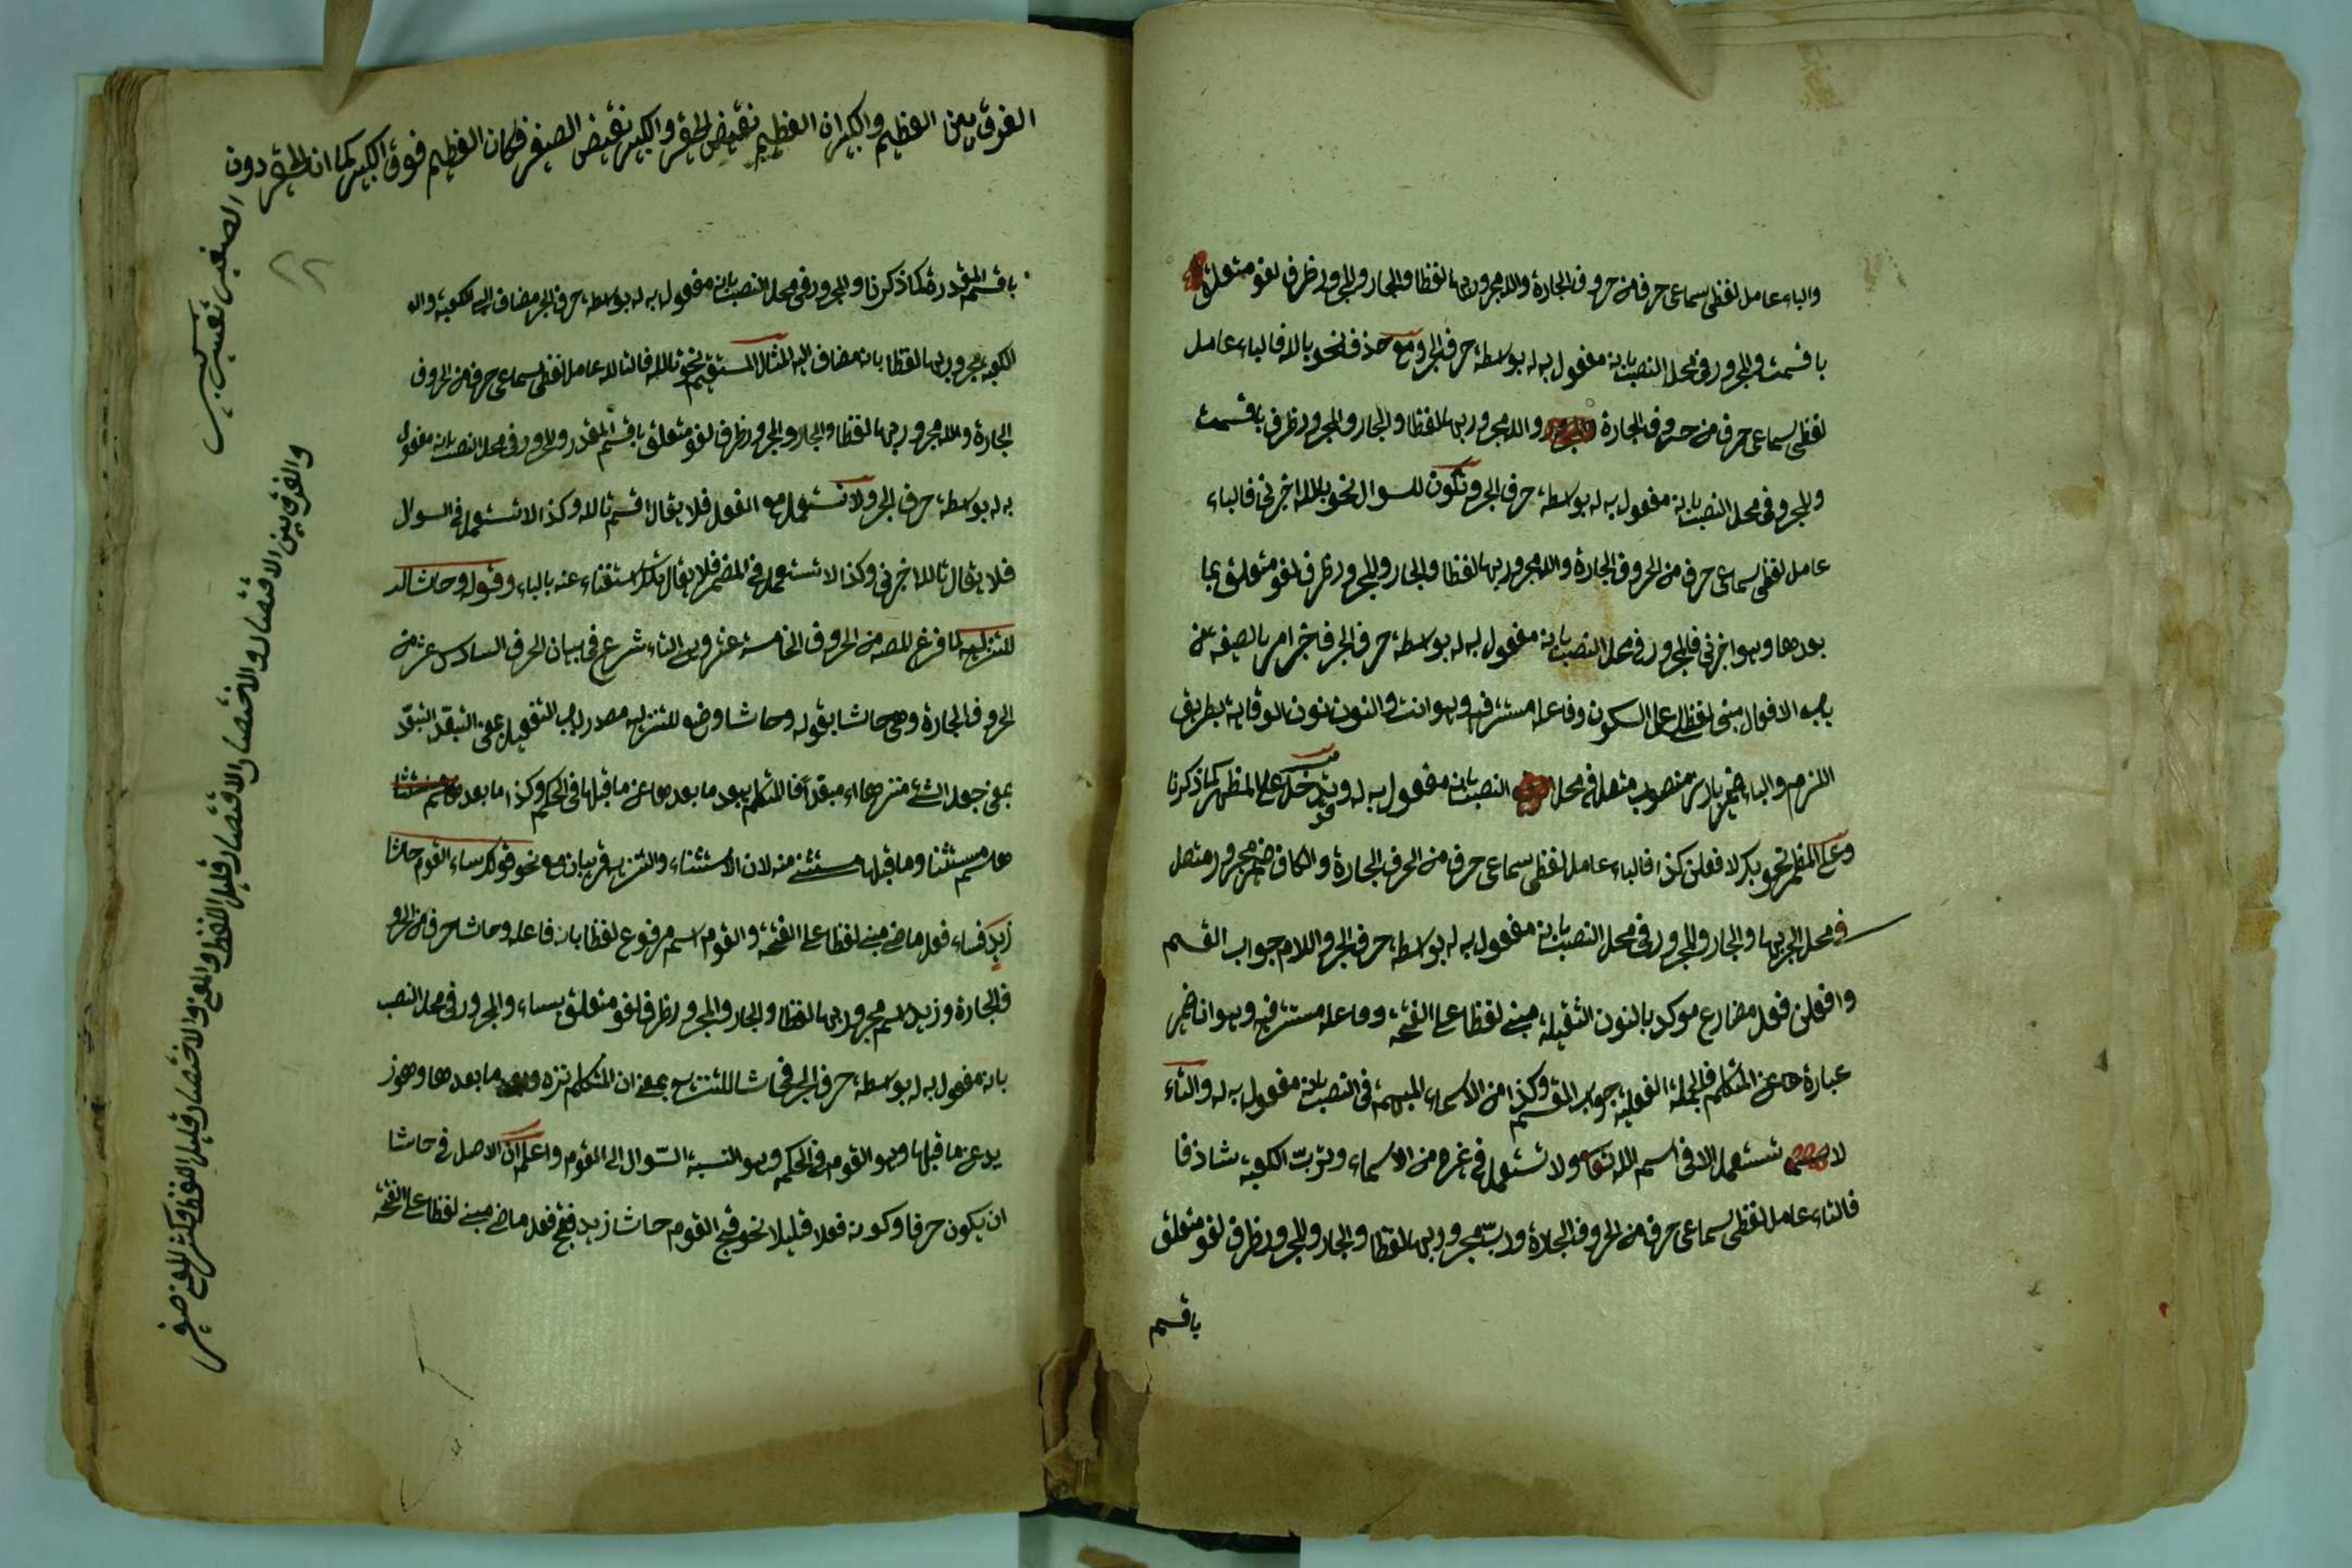 والباء عامل لفظى سماعى حرف من حروف الجارة والله مجرور بها لفظا والجار والمجرور ظرف لغو متعلق
باقسمت والمجرور فى محل النصب بانه مفعول به له بواسطة حرف الجر ومع حذفه نحو بالله فالباء عامل
لفظى سماعى حرف من حروف الجارة والله مجرور بها لفظا والجار والمجرور ظرف باقسمت
والمجرور فى محل النصب بانه مفعول به له بواسطة حرف الجر وتكون للسوال نحو بالله اخبرنى فالباء
عامل لفظى سماعى حرف من الحروف الجارة والله مجرور بها لفظا والجار والمجرور ظرف لغو متعلق بما
بعدها وهو اخبرنى فالمجرور فى محل النصب بانه مفعول به له بواسطة حرف الجر فاخبر امر بالصيغة من
باب الافعال مبنى لفظا على السكون وفاعله مستتر فيه وهو انت والنون نون الوقاية بطريق
اللزوم والياء ضمير بارز منصوب متصل فى محل النصب بانه مفعول به له وقد تدخل على المظهر كما ذكرنا
وعلى المضمر نحو بك لافعلن كذا فالباء عامل لفظى سماعى حرف من الحرف الجارة والكاف ضمير مجرور متصل
فى محل الجر بها والجار والمجرور فى محل النصب بانه مفعول به له بواسطة حرف الجر واللام جواب القسم
وافعلن فعل مضارع موكد بالنون الثقيلة مبنى لفظا على الفتحة وفاعله مستتر فيه وهو انا ضمير
عبارة عن المتكلم فالجملة الفعلية جواب القسم وكذا من الاسماء المبهمة فى النصب بانه مفعول به له والتاء
لا تستعمل الا فى اسم الله تعالى ولا تستعمل فى غيره من الاسماء وترب الكعبة شاذ فا
فالتاء عامل لفظى سماعى حرف من الحروف الجارة ورب اسم مجرور بها لفظا والجار والمجرور ظرف لغو متعلق
باقسم
الفرق بين العظيم والكبير ان العظيم نقيض الحقير والكبير نقيض الصغير فكان العظيم فوق الكبير كما ان الحقير دون
الصغير تفسير كبير
٢٢
والفرق بين الاقتصار والاختصار الاقتصار قليل اللفظ والمعنى والاختصار قليل اللفظ وكثير المعنى
باقسم المقدر هكذا ذكرنا والمجرور فى محل النصب بانه مفعول به له بواسطة حرف الجر مضاف الى الكعبة
الكعبة مجرور بها لفظا بانه مضاف اليه المثال المستقيم نحو تالله فالتاء عامل لفظى سماعى حرف من الحروف
الجارة والله مجرور بها لفظا والجار والمجرور ظرف لغو متعلق باقسم المقدر والمجرور فى محل النصب بانه مفعول
به له بواسطة حرف الجر ولا تستعمل مع الفعل فلا يقال اقسم تالله وكذا لا تستعمل فى السوال
فلا يقال تالله اخبرنى وكذا لا تستعمل فى المضمر فلا يقال تك استغناء عنه بالباء وقوله وحاشا
للتنزيه لما فرغ المصـ من الحروف الخامسة عشر وهى التاء شرع فى بيان الحرف السادس عشر من
الحروف الجارة وهى حاشا بقوله وحاشا وضع للتنزيه مصدر باب التفعيل بمعنى
بمعنى جعل الشئ منتزها اى مبعّدا فالمتكلم يبعد ما بعدها عن ما قبلها فى الحكم وكذا ما بعد
ها اسم مستثنا وما قبلها مستثنى منه لان الاستثناء والتنزيه قريبان معه نحو قولك ساء القوم حاشا
زيد فساء فعل ماض مبنى لفظا على الفتحة والقوم اسم مرفوع لفظا بانه فاعله وحاشا حرف من الحرو
ف الجارة وزيد اسم مجرور بها لفظا والجار والمجرور ظرف لغو متعلق بساء والمجرور فى محل النصب
بانه مفعول به له بواسطة حرف الجر فحاشا للتنزيه بمعنى ان المتكلم نزه ما بعدها وهو ز
يد عن ما قبلها وهو القوم فى الحكم وهو النسبة السوال الى القوم واعلم ان الاصل فى حاشا
ان يكون حرفا وكونه فعلا قليلا نحو فتح القوم حاشا زيد ففتح فعل ماض مبنى لفظا على الفتحة